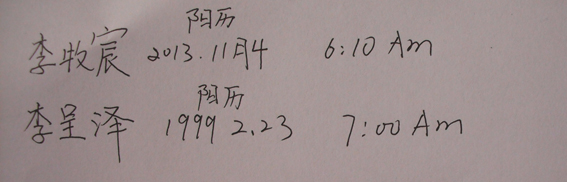 阳历
李牧宸 2013.11月4 6:10 Am
阳历
李呈泽 1999 2.23 7:00 Am